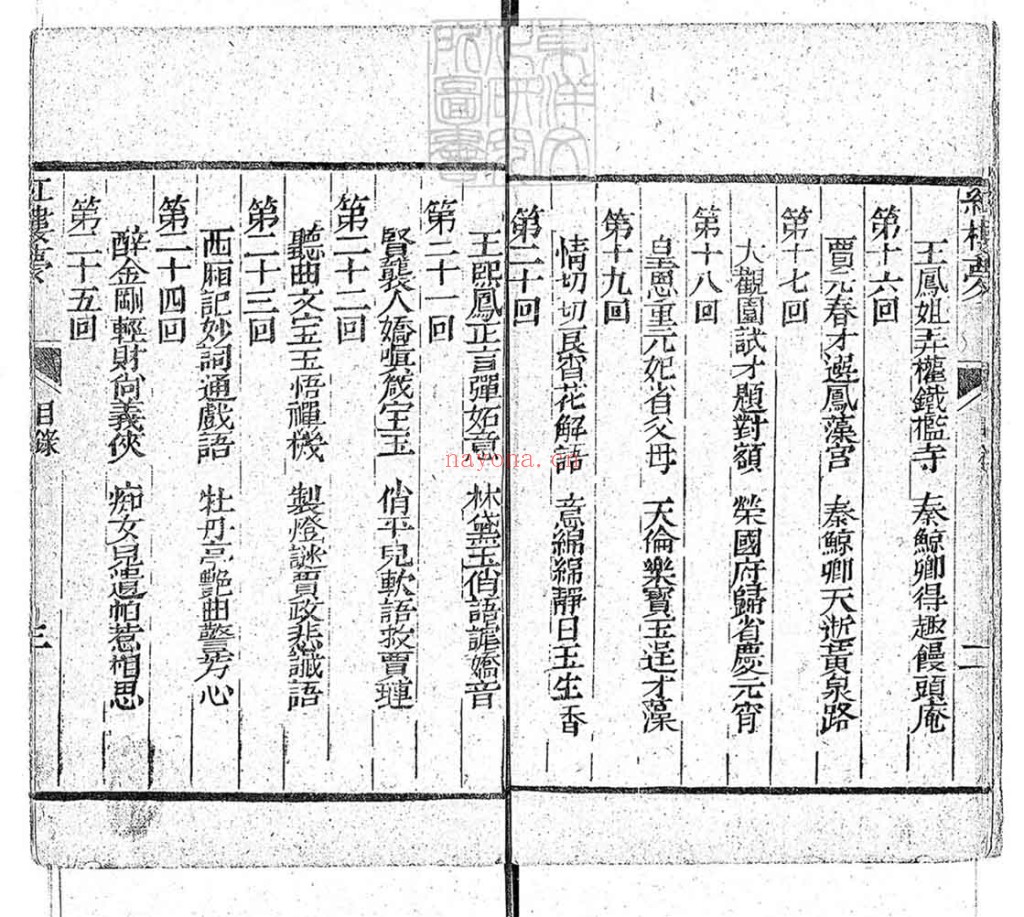 紅樓夢
二
王鳳姐弄權鐵檻寺　秦鯨卿得趣饅頭庵
第十六回
賈元春才選鳳藻宮　秦鯨卿天逝黃泉路
第十七回
大觀園試才題對額　榮國府歸省慶元宵
第十八回
皇恩重元妃省父母　天倫樂寶玉逞才藻
第十九回
情切切良宵花解語　意綿綿靜日玉生香
第二十回
王熙鳳正言彈妬意　林黛玉俏語謔嬌音
第二十一回
賢襲人嬌嗔箴宝玉　俏平兒軟語救賈璉
第二十二回
聽曲文宝玉悟禪機　製燈謎賈政悲讖語
第二十三回
西厢記妙詞通戲語　牡丹亭艷曲警芳心
第二十四回
醉金剛輕財尙義俠　痴女兒遺帕惹相思
第二十五回
紅樓夢
目錄
三
東洋文化研究所圖書
nayona.cn